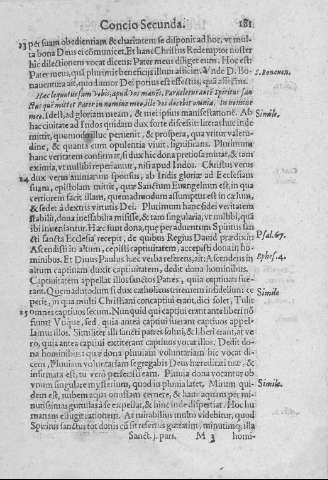 Concio Secunda. 181
23 per suam obedientiam & charitatem se disponit ad hoc, vt multa bona Deus ei cõmunicet. Et hanc Christus Redemptor noster
hic dilectionem vocat dicens: Pater meus diliget eum. Hoc est
Pater meus, qua plurimis beneficijs illum afficiet. Vnde D. Bo-
nauentura ait, quòd amor Dei potius est effectus, quàm affectus.
S. Bonauen.
Hæc locutus sum vobis, apud vos manẽs. Paracletus autẽ Spiritus san
ctus quẽ mittet Pater in nomine meo, ille vos docebit omnia. In nomine
meo, idest, ad gloriam meam, & mei ipsius manifestationẽ. Ab
Simile.
hac ciuitate ad Indos quidam dux forte discessit: litteras huc inde
mittit, quemodo illuc peruenit, & prospera, qua vritur valetu-
dine, & quanta cum opulentia viuit, significans. Plurimum
hanc veritatem confirmat, si dux hic dona pretiosa mittat, & tam
eximia, vt nullibi reperiantur, nisi apud Indos. Christus verus
24 dux verus animarum sponsus, ab Indis gloriæ ad Ecclesiam
suam, epistolam mittit, quæ Sanctum Euangelium est, in qua
certiorem facit illam, quemadmodum assumptus est in cælum,
& sedet à dextris virtutis Dei. Plurimum hanc fidei veritatem
stabilit, dona ineffabilia misisse, & tam singularia, vt nullibi, qua
ibi inueniantur. Hæc sunt dona, que per aduentum Spiritus san
cti sancta Ecclesia recepit, de quibus Regius Dauid prædixit:
Psal. 67.
Ascendisti in altum, cepisti captiuitatem, accepisti dona in ho-
minibus. Et Diuus Paulus hæc verba referens, ait: Ascendens in
Ephes. 4.
altum captiuam duxit captiuitatem, dedit dona hominibus.
Captiuitatem appellat illos sanctos Patres, quia captiuati fue-
runt. Quemadmodum si dux
Simile
perit, in qua multi Christiani concaptiui erant, dici solet, Tulit
25 omnes captiuos secum. Nunquid qui captiui erant ante liberi nõ
sunt? Vtique, sed, quia antea captiui fuerant captiuos appel-
lamus illos. Similiter illi sancti patres soluti, & liberi erant, at ve-
rò, quia antea captiui extiterant captiuos vocat illos. Dedit do-
na hominibus: quæ dona pluuiam voluntariam hic vocat di-
cens, Pluuiam voluntariam segregabis Deus hæreditati tuæ, &
infirmata est, tu verò perfecisti eam. Pluuia dona vocantur ob
vnum singulare mysterium, quod in pluuia latet. Mirum qui-
dem est, nubem aqua onustam cernere, & hanc aquam per mi-
Simile.
nutissimas guttulas à se expellat, & hinc inde dispertiat. Hoc hu-
manum effugit rationem. At mirabilius multo videbitur, quod
Spiritus sanctus tot donis cũ sit refertus guttatim, minutimq; illa
Sanct. j. pars. M 3 homi-